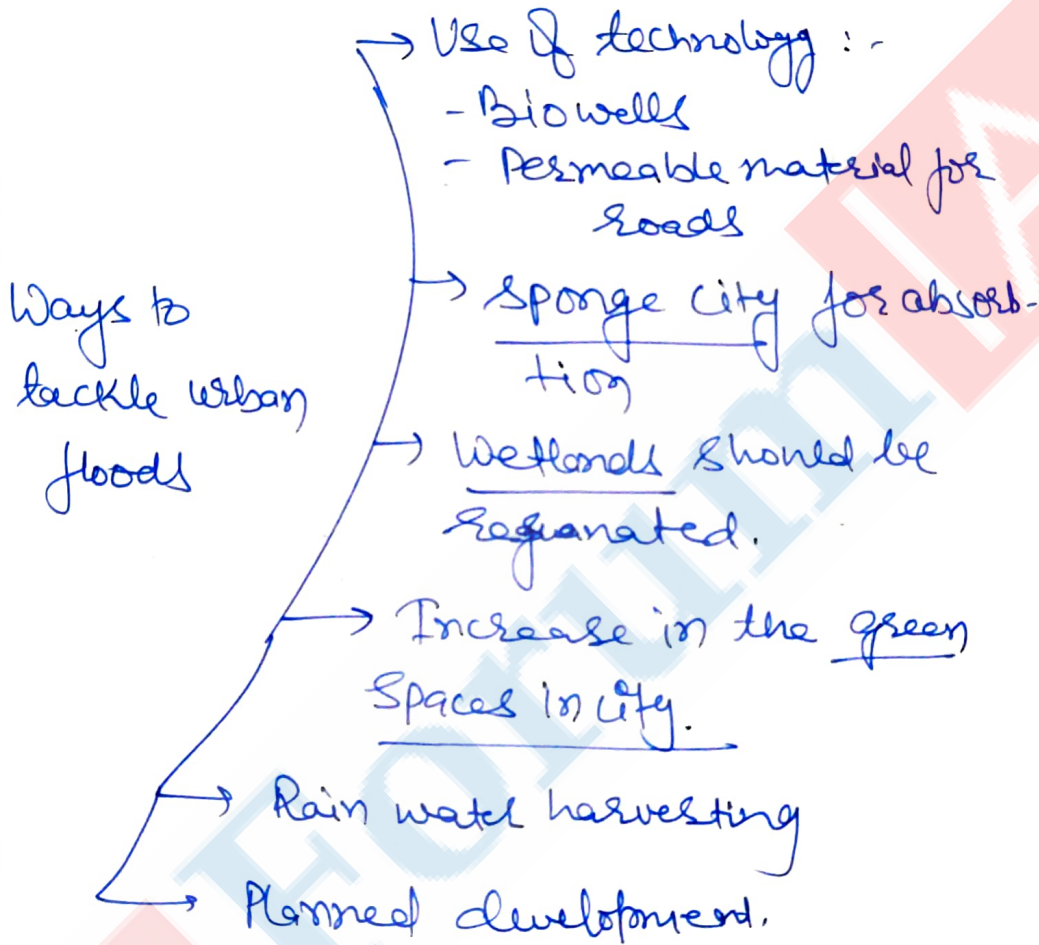 Ways to
tackle urban
floods
→ Use of technology :-
- Biowells
- Permeable material for
roads
→ Sponge city for absorb-
tion
→ Wetlands should be
regianated.
→ Increase in the green
spaces in city.
→ Rain water harvesting
→ Planned development.
Forum IA